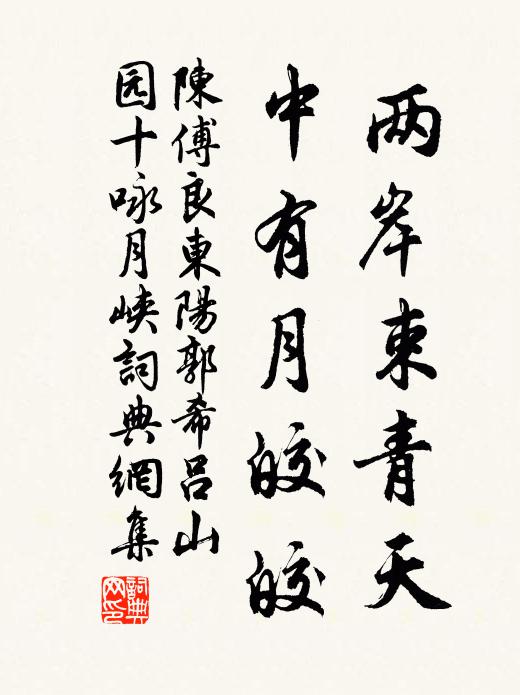 两岸束青天
中有月皎皎
陳傅良東陽郭希呂山
园十咏月峽詞典網集
詞典
网印